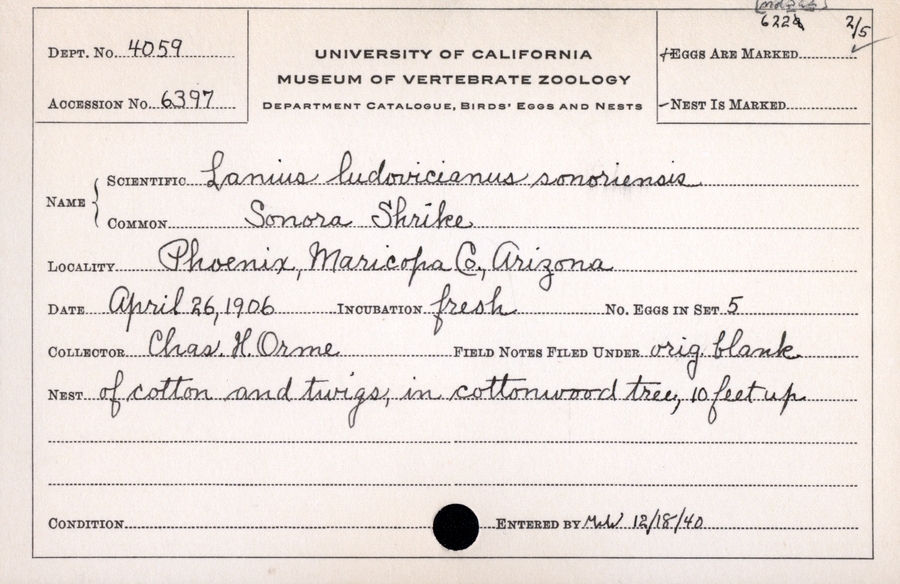 622a 2/5
DEPT. NO. 4059
ACCESSION NO. 6397
UNIVERSITY OF CALIFORNIA
MUSEUM OF VERTEBRATE ZOOLOGY
DEPARTMENT CATALOGUE, BIRDS' EGGS AND NESTS
EGGS ARE MARKED
NEST IS MARKED
NAME
SCIENTIFIC Lanius ludovicianus sonoriensis
COMMON Sonora Shrike
LOCALITY Phoenix, Maricopa Co., Arizona
DATE April 26, 1906 INCUBATION fresh NO. EGGS IN SET 5
COLLECTOR Chas. H. Orme FIELD NOTES FILED UNDER orig. blank
NEST of cotton and twigs, in cottonwood tree, 10 feet up
CONDITION ENTERED BY 12/18/40